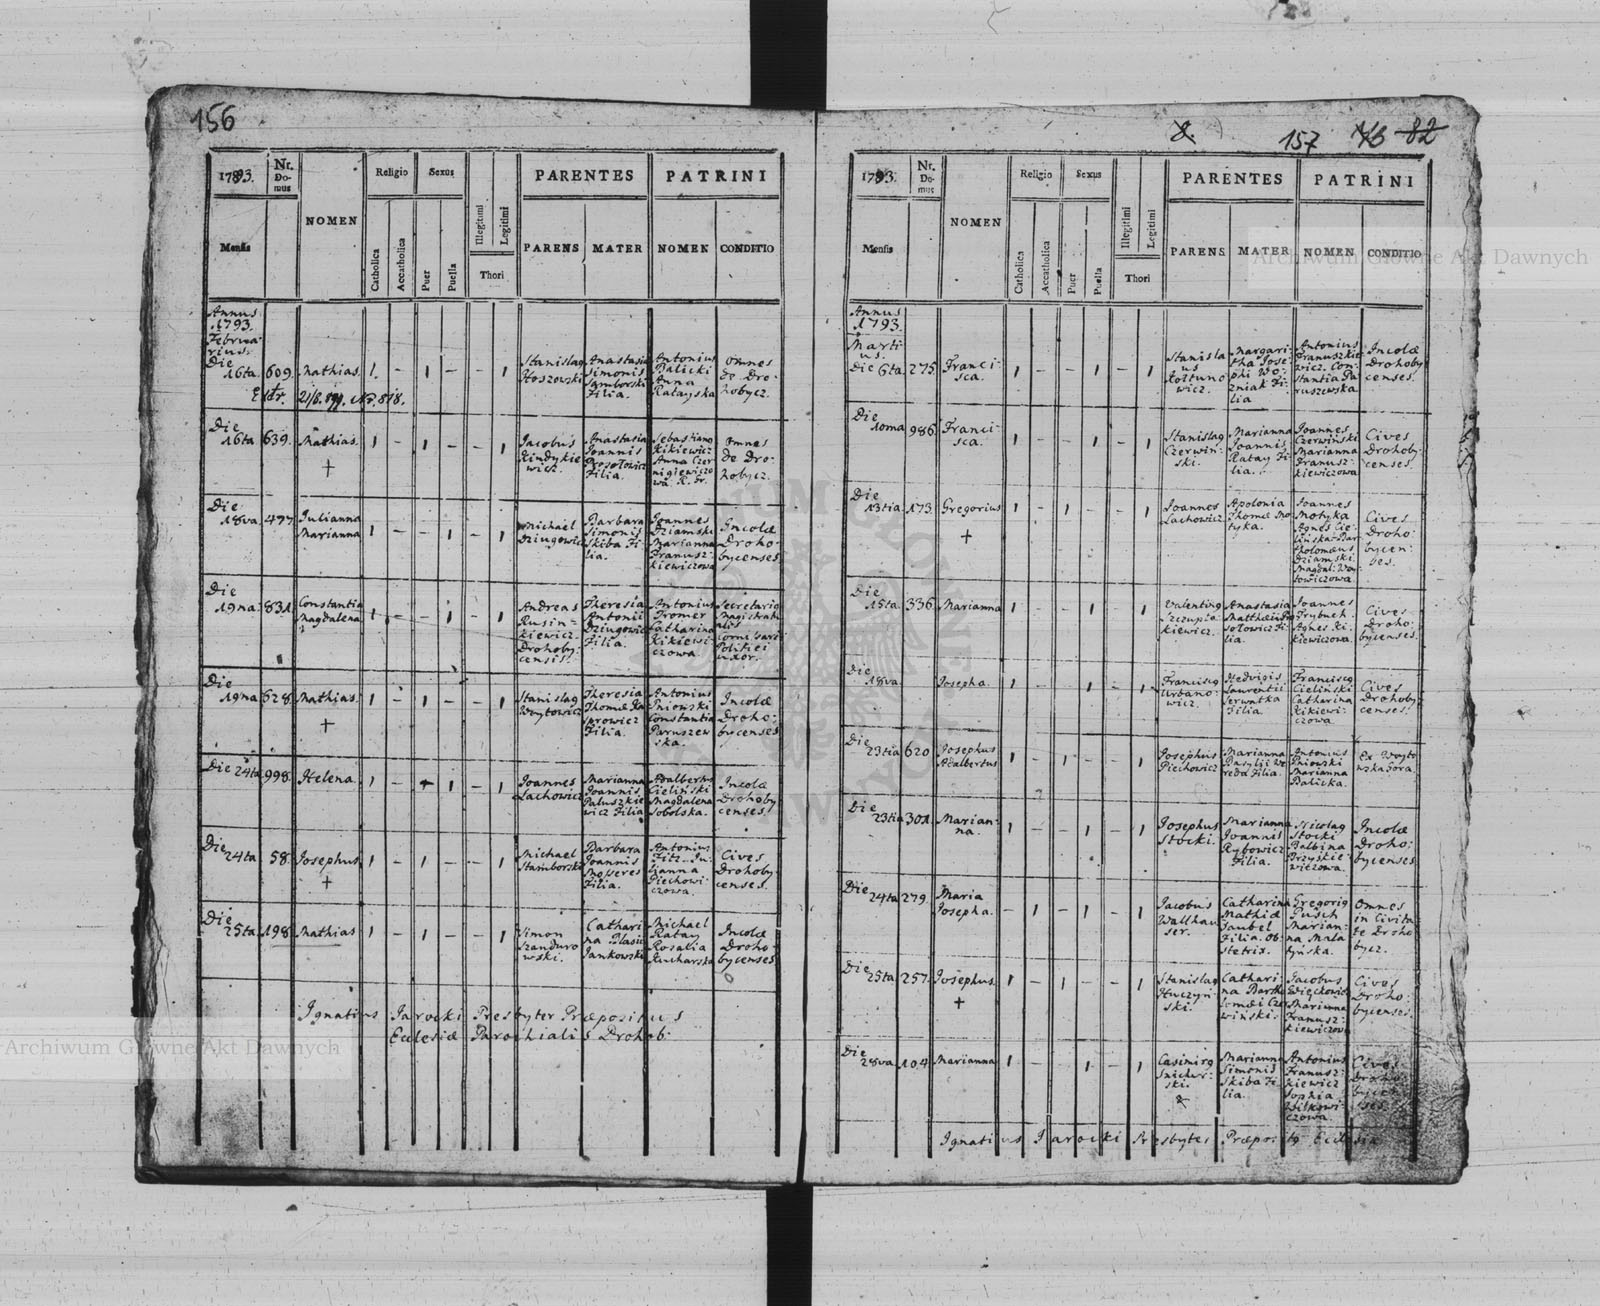 156
1793.
Nr. Do-mus
NOMEN
Religio
Sexus
PARENTES
PATRINI
Mensis
Catholica
Accatholica
Puer
Puella
Illegitimi
Legitimi
Thori
PARENS
MATER
NOMEN
CONDITIO
Annus
1793.
Februa
rius.
Die
16ta. 609. Mathias. 1. – 1 – – 1
Stanislaq
Hoszowski
Anastasia
Simonis
Samborski
Filia.
Antonius
Balicki
Anna
Ratayska
Omnes
de Dro-
hobycz.
Extr.
Die
16ta 639. Mathias. 1 – 1 – – 1
†
Jacobus
Kindykie
wicz.
Anastasia
Joannis
Filia.
Sebastianq
Kikiewicz
Anna Czer
nigiewiczo
wa. R. Gr.
Omnes
de Dro-
hobycz.
Die
18va. 477 Julianna
Marianna 1 – – 1 – 1
Michael
Dziugowicz
Barbara
Simonis
Skiba Fi
lia.
Joannes
Dziamski
Marianna
Franusz-
kiewiczowa
Incolæ
Droho-
bycenses
Die
19na. 831. Constantia
Magdalena 1 – – 1 – 1
Andreas
Rusin-
kiewicz.
Drohoby-
censis.
Theresia
Antonii
Dziugowicz
Filia.
Antonius
Fromer
Catharina
Kikiewi-
czowa
Secretariq
Magistratu
alis
Politiei
uxor.
Die
19na 628. Mathias. 1 – 1 – – 1
†
Stanislaq
Woytowicz
Theresia
Thomæ Ka
sprowicz
Filia.
Antonius
Gniowski
Constantia
Paruszew
ska.
Incolæ
Droho-
bycenses
Die 24ta 998. Helena. 1 – – 1 – 1
Joannes
Lachowicz
Marianna
Joannis
Paluszkie
wicz Filia
Adalbertus
Cieliński
Magdalena
Sobolska.
Incolæ
Drohoby
censes.
Die
24ta 58. Josephus 1 – 1 – – 1
†
Michael
Stamborski
Barbara
Joannis
Filia.
Antonius
Piechowi-
czowa.
Cives
Drohoby
censes.
Die
25ta. 198. Mathias 1 – 1 – – 1
Simon
Szanduro
wski.
Cathari
na Blasii
Jankowski
Michael
Ratay
Rosalia
Kucharska
Incolæ
Droho-
bycenses
Ignatius Jarocki Presbyter Præpositus
Ecclesiæ Parochialis Drohob.
157
82
1793.
Nr. Do-mus
NOMEN
Religio
Sexus
PARENTES
PATRINI
Mensis
Catholica
Accatholica
Puer
Puella
Illegitimi
Legitimi
Thori
PARENS
MATER
NOMEN
CONDITIO
Annus
1793.
Marti
us.
Die 6ta. 275. Franci-
sca. 1 – – 1 – 1
Stanisla
us
Kołtuno
wicz.
Margari-
tha Jose
phi Wo-
zniak Fi-
lia
Antonius
Franuszkie
wicz. Con-
stantia Pa
ruszewska
Incolæ
Drohoby
censes.
Die
10ma 986. Franci-
sca. 1 – – 1 – 1
Stanislaq
Czerwiń-
ski.
Marianna
Joannis
Ratay Fi-
lia.
Joannes
Czerwiński
Marianna
Franusz-
kiewiczowa
Cives
Drohoby
censes.
Die
13tia. 173. Gregorius 1 – 1 – – 1
†
Joannes
Lachowicz.
Apolonia
Thomæ Mo
tyka.
Joannes
Motyka
Agnes Cie-
lińska Bar
tholomæus
Dziamski
Cives
Droho-
bycen-
ses.
Die
15ta. 336. Marianna 1 – – 1 – 1
Valentinq
Szczupta
kiewicz.
Anastasia
Matthæi Pro
sołowicz Fi-
lia.
Joannes
Agnes Ki-
kiewiczowa.
Cives
Droho-
bycenses.
Die
18va. Josepha. 1 – – 1 – 1
Franciscq
Urbano-
wicz.
Hedvigis
Laurentii
Serwatka
Filia
Franciscq
Cieliński
Catharina
Kikiewi-
czowa
Cives
Drohoby
censes.
Die
23tia 620 Josephus
Adalbertus 1 – 1 – – 1
Josephus
Piechowicz
Marianna
Basylii We
reda Filia.
Antonius
Gniowski
Marianna
Balicka.
Ex Woyto
wska Góra.
Die
23tia 301. Marian-
na. 1 – – 1 – 1
Josephus
Stocki.
Marianna
Joannis
Rybowicz
Filia.
Nicolaq
Stocki
Balbina
Brzyskie-
wiczowa.
Incolæ
Droho-
bycenses
Die
24ta 279. Maria
Josepha. – 1 – 1 – 1
Jacobus
Wallhau
ser.
Catharina
Mathiæ
Taubel
Filia. Ob-
stetrix.
Gregoriq
Pusch
Marian-
na Mala
tyńska.
Omnes
in Civita
te Droho
bycz.
Die
25ta 257. Josephus. 1 – 1 – – 1
†
Stanislaq
Huczyń-
ski.
Cathari-
na Bartho
lomæi Czer
wiński.
Jacobus
Święckowicz
Marianna
Franusz-
kiewiczowa
Cives
Droho-
bycenses.
Die
28va. 104 Marianna 1 – – 1 – 1
Casimirq
Snichur-
ski.
Marianna
Simonis
Skiba Fi-
lia.
Antonius
Franusz-
kiewicz
Sophia
Witkowi-
czowa
Cives
Droho-
bycen-
ses.
Ignatius Jarocki Presbyter Præpositq Ecclesiæ
Archiwum Główne Akt Dawnych
Archiwum Główne Akt Dawnych